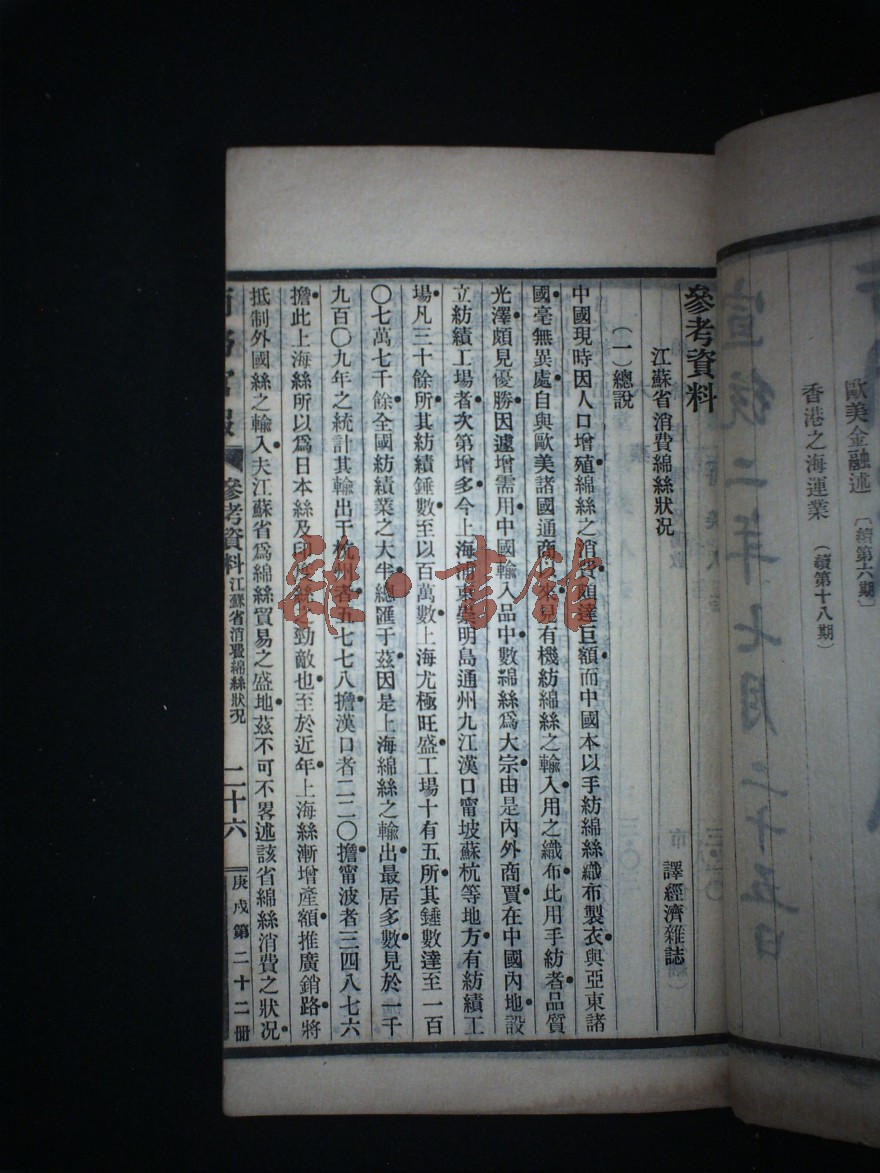 歐美金融述〔續第六期〕
香港之海運業(續第十八期)
宣統二年七月二十五日
參考資料
江蘇省消費綿絲狀況 譯經濟雜誌
(一)總說
中國現時因人口增殖綿絲之消費頗達巨額而中國本以手紡綿絲織布製衣與亞東諸
國毫無異處自與歐美諸國通商
有機紡綿絲之輸入用之織布此用手紡者品質
光澤頗見優勝因遽增需用中國輸入品中數綿絲爲大宗由是內外商賈在中國內地設
立紡績工場者次第增多今上海浦東崇明島通州九江漢口甯坡蘇杭等地方有紡績工
場凡三十餘所其紡績錘數至以百萬數上海尤極旺盛工場十有五所其錘數達至一百
〇七萬七千餘全國紡績業之大半總匯于茲因是上海綿絲之輸出最居多數見於一千
九百〇九年之統計其輸出于杭州者五七七八擔漢口者二二〇擔甯波者三四八七六
擔此上海絲所以爲日本絲及印度絲之勁敵也至於近年上海絲漸增產額推廣銷路將
抵制外國絲之輸入夫江蘇省爲綿絲貿易之盛地茲不可不畧述該省綿絲消費之狀況
參考資料 江蘇省消費綿絲狀況 二十六 庚戌第二十二冊
書館